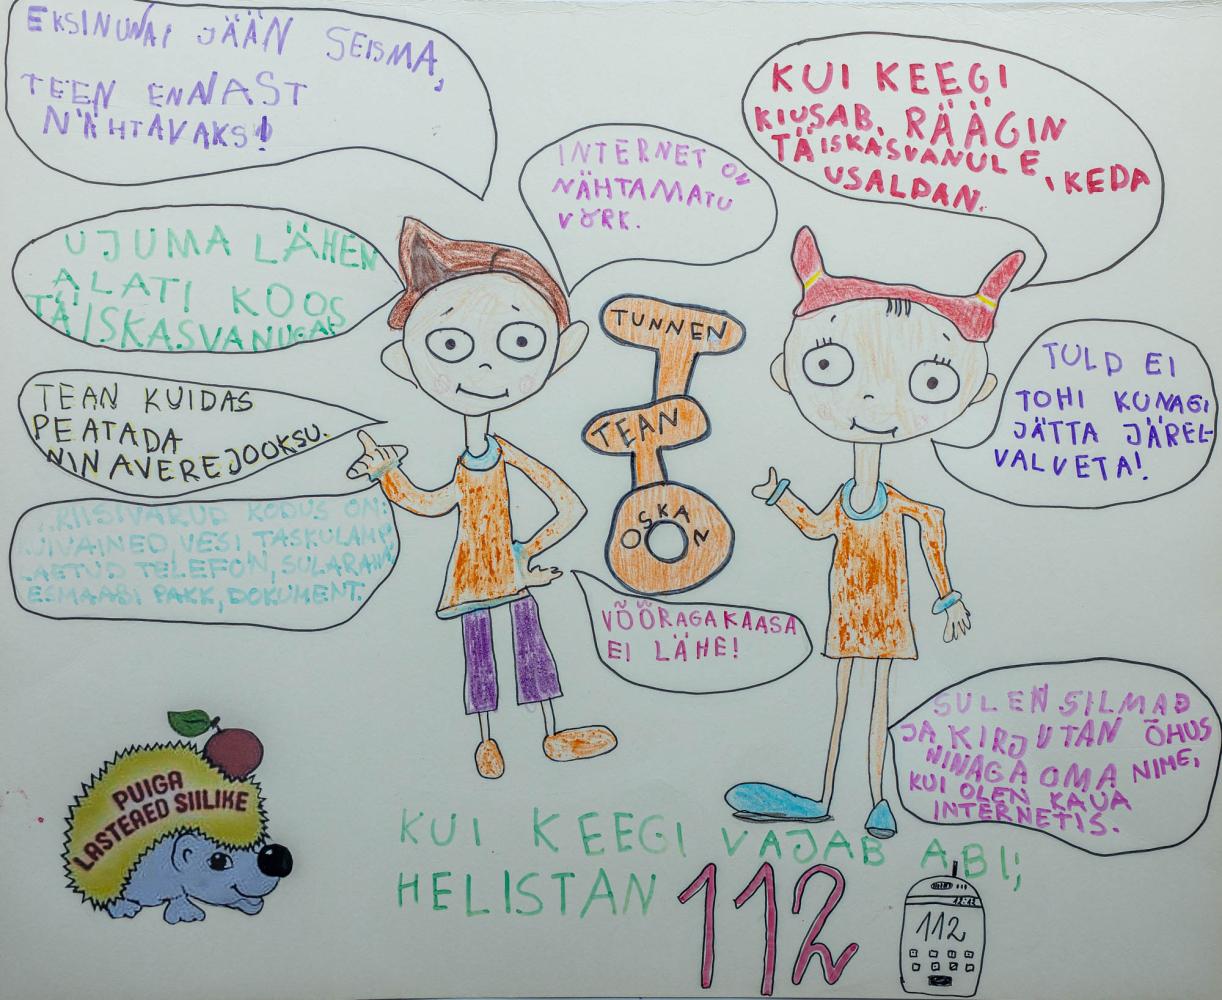 EKSINUNAI JÄÄN SEISMA,
TEEN ENNAST
NÄHTAVAKS!
INTERNET ON
NÄHTAMATU
VÕRK.
KUI KEEGI
KIUSAB, RÄÄGIN
TÄISKASVANULE, KEDA
USALDAN.
UJUMA LÄHEN
ALATI KOOS
TÄISKASVANUGA
TUNNEN
TEAN
OSKAN
TULD EI
TOHI KUNAGI
JÄTTA JÄREL-
VALVETA!
TEAN KUIDAS
PEATADA
NINAVEREJOOKSU.
KODUS ON:
VESI TASKULAMP
LAETUD TELEFON, SULARAHA
ESMAABI PAKK, DOKUMENT.
VÕÕRAGA KAASA
EI LÄHE!
SULEN SILMAD
JA KIRJUTAN ÕHUS
NINAGA OMA NIME,
KUI OLEN KAUA
INTERNETIS.
PUIGA
LASTEAED SIILIKE
KUI KEEGI VAJAB ABI;
HELISTAN 112
12:12
112